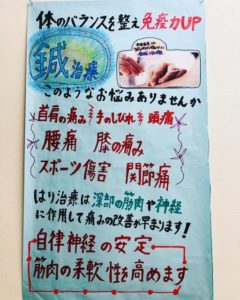 体のバランスを整え免疫力UP
鍼治療
このようなお悩みありませんか
首肩の痛み 手のしびれ 頭痛
腰痛 膝の痛み
スポーツ傷害 関節痛
はり治療は深部の筋肉や神経
に作用して痛みの改善が早まります!
自律神経の安定
筋肉の柔軟性を高めます